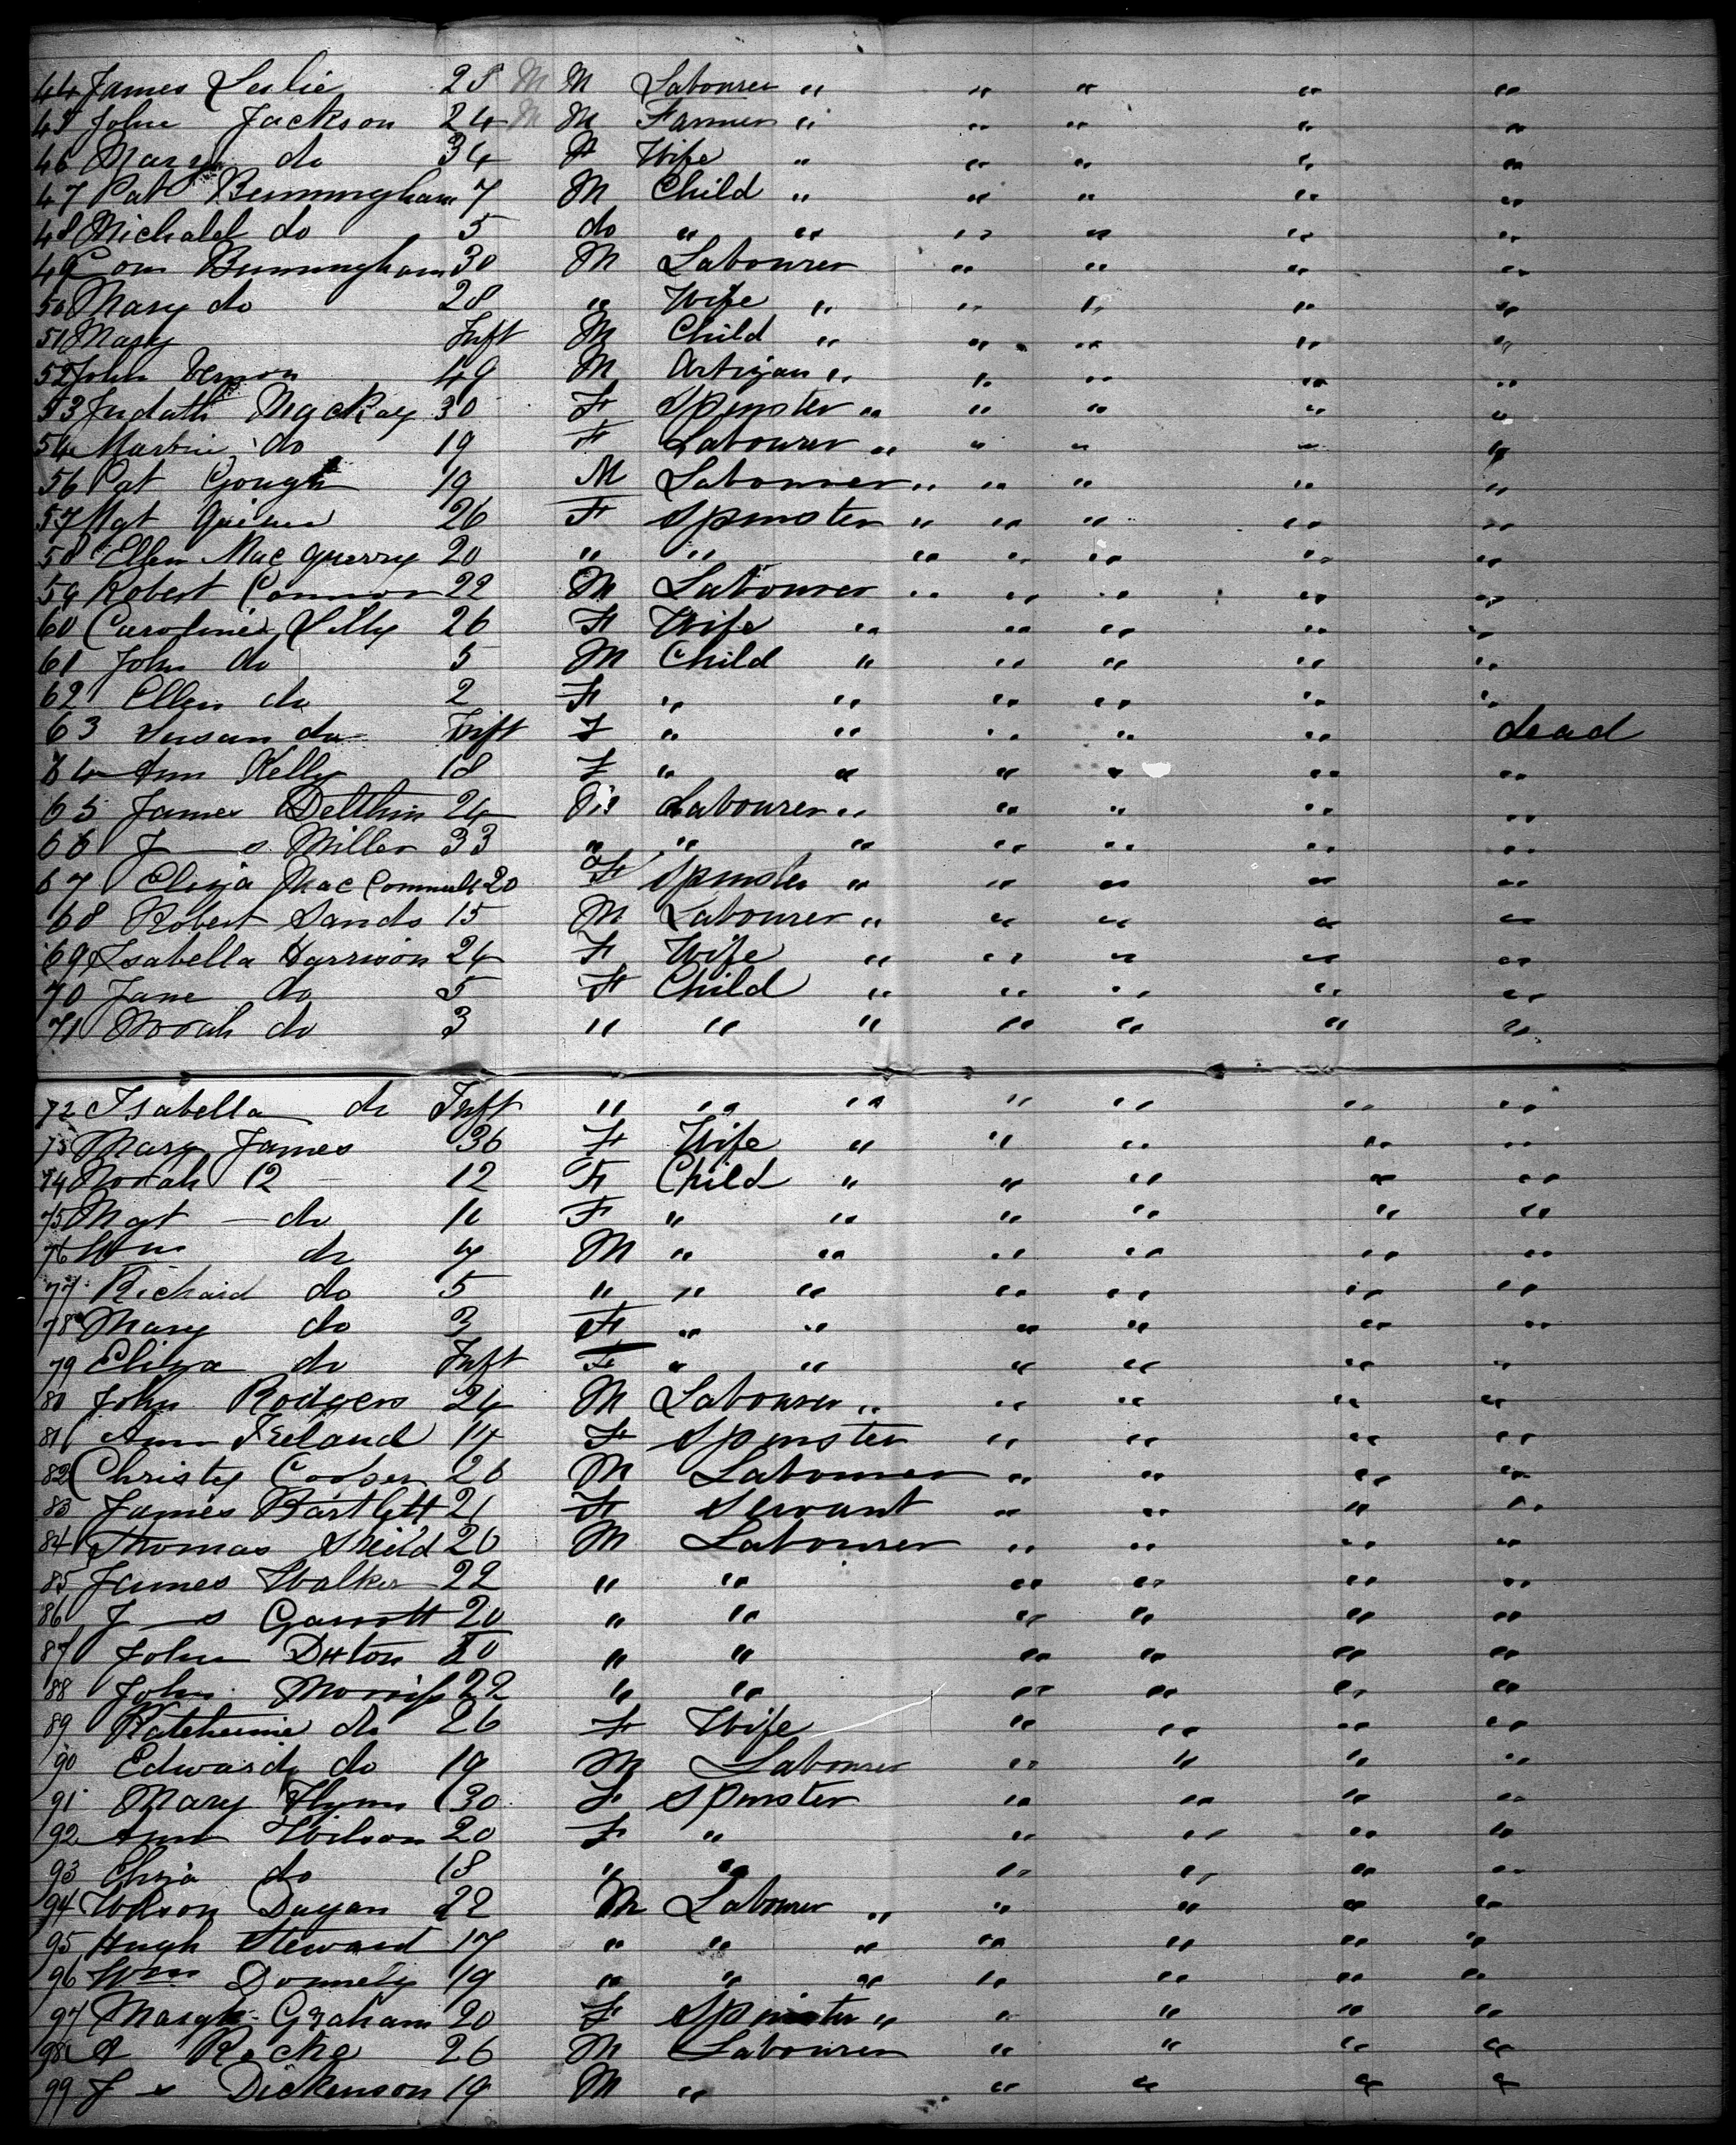 44 James Leslie 28 M M Labourer " " " " "
45 John Jackson 24 M M Farmer " " " " "
46 Mary do 34 F Wife " " " " "
47 Pat Bermingham 7 M Child " " " " "
48 Michalel do 5 do " " " " " "
49 Bermingham 30 M Labourer " " " "
50 Mary do 28 " Wife " " " " "
51 Mary Inft M Child " " " " "
52 John Vernon 49 M Artizan " " " " "
53 Judath MacKay 30 F Spinster " " " " "
54 Martin do 19 F Labourer " " " " "
56 Pat Gough 19 M Labourer " " " " "
57 Mgt 26 F Spinster " " " " "
58 Ellen Mac Querry 20 " " " " " " "
59 Robert Connor 22 M Labourer " " " " "
60 Caroline Lilly 26 F Wife " " " " "
61 John do 5 M Child " " " " "
62 Ellen do 2 F " " " " " "
63 Susan do Inft F " " " " " dead
64 Ann Kelly 18 F " " " " " "
65 James 24 M Labourer " " " " "
66 J—s Miller 33 " " " " " " "
67 Eliza Mac 20 F Spinster " " " " "
68 Robert Sands 15 M Labourer " " " " "
69 Isabella Harrison 24 F Wife " " " " "
70 Jane do 5 F Child " " " " "
71 Norah do 3 " " " " " " "
72 Isabella do Inft " " " " " " "
73 Mary James 36 F Wife " " " " "
74 Norah 12 - 12 F Child " " " " "
75 Mgt - do 10 F " " " " " "
76 Wm do 7 M " " " " " "
77 Richard do 5 " " " " " " "
78 Mary do 3 F " " " " " "
79 Eliza do Inft F " " " " " "
80 John Rodgers 24 M Labourer " " " " "
81 Ann Ireland 17 F Spinster " " " "
82 Christy 26 M Labourer " " " "
83 James Bartlett 21 F Servant " " " "
84 Thomas Sheild 20 M Labourer " " " "
85 James Walker 22 " " " " " "
86 J—s Garrott 20 " " " " " "
87 John 20 " " " " " "
88 John Morriss 22 " " " " " "
89 Katherine do 26 F Wife " " " "
90 Edward do 19 M Labourer " " " "
91 Mary Flynn 30 F Spinster " " " "
92 Ann Wilson 20 F " " " " "
93 Eliza do 18 " " " " " "
94 Wilson Dugan 22 M Labourer " " " " "
95 Hugh Steward 17 " " " " " " "
96 Wm Donnely 19 " " " " " " "
97 Margt Graham 20 F Spinster " " " " "
98 A Roche 26 M Labourer " " " "
99 J s Dickenson 19 M " " " " "